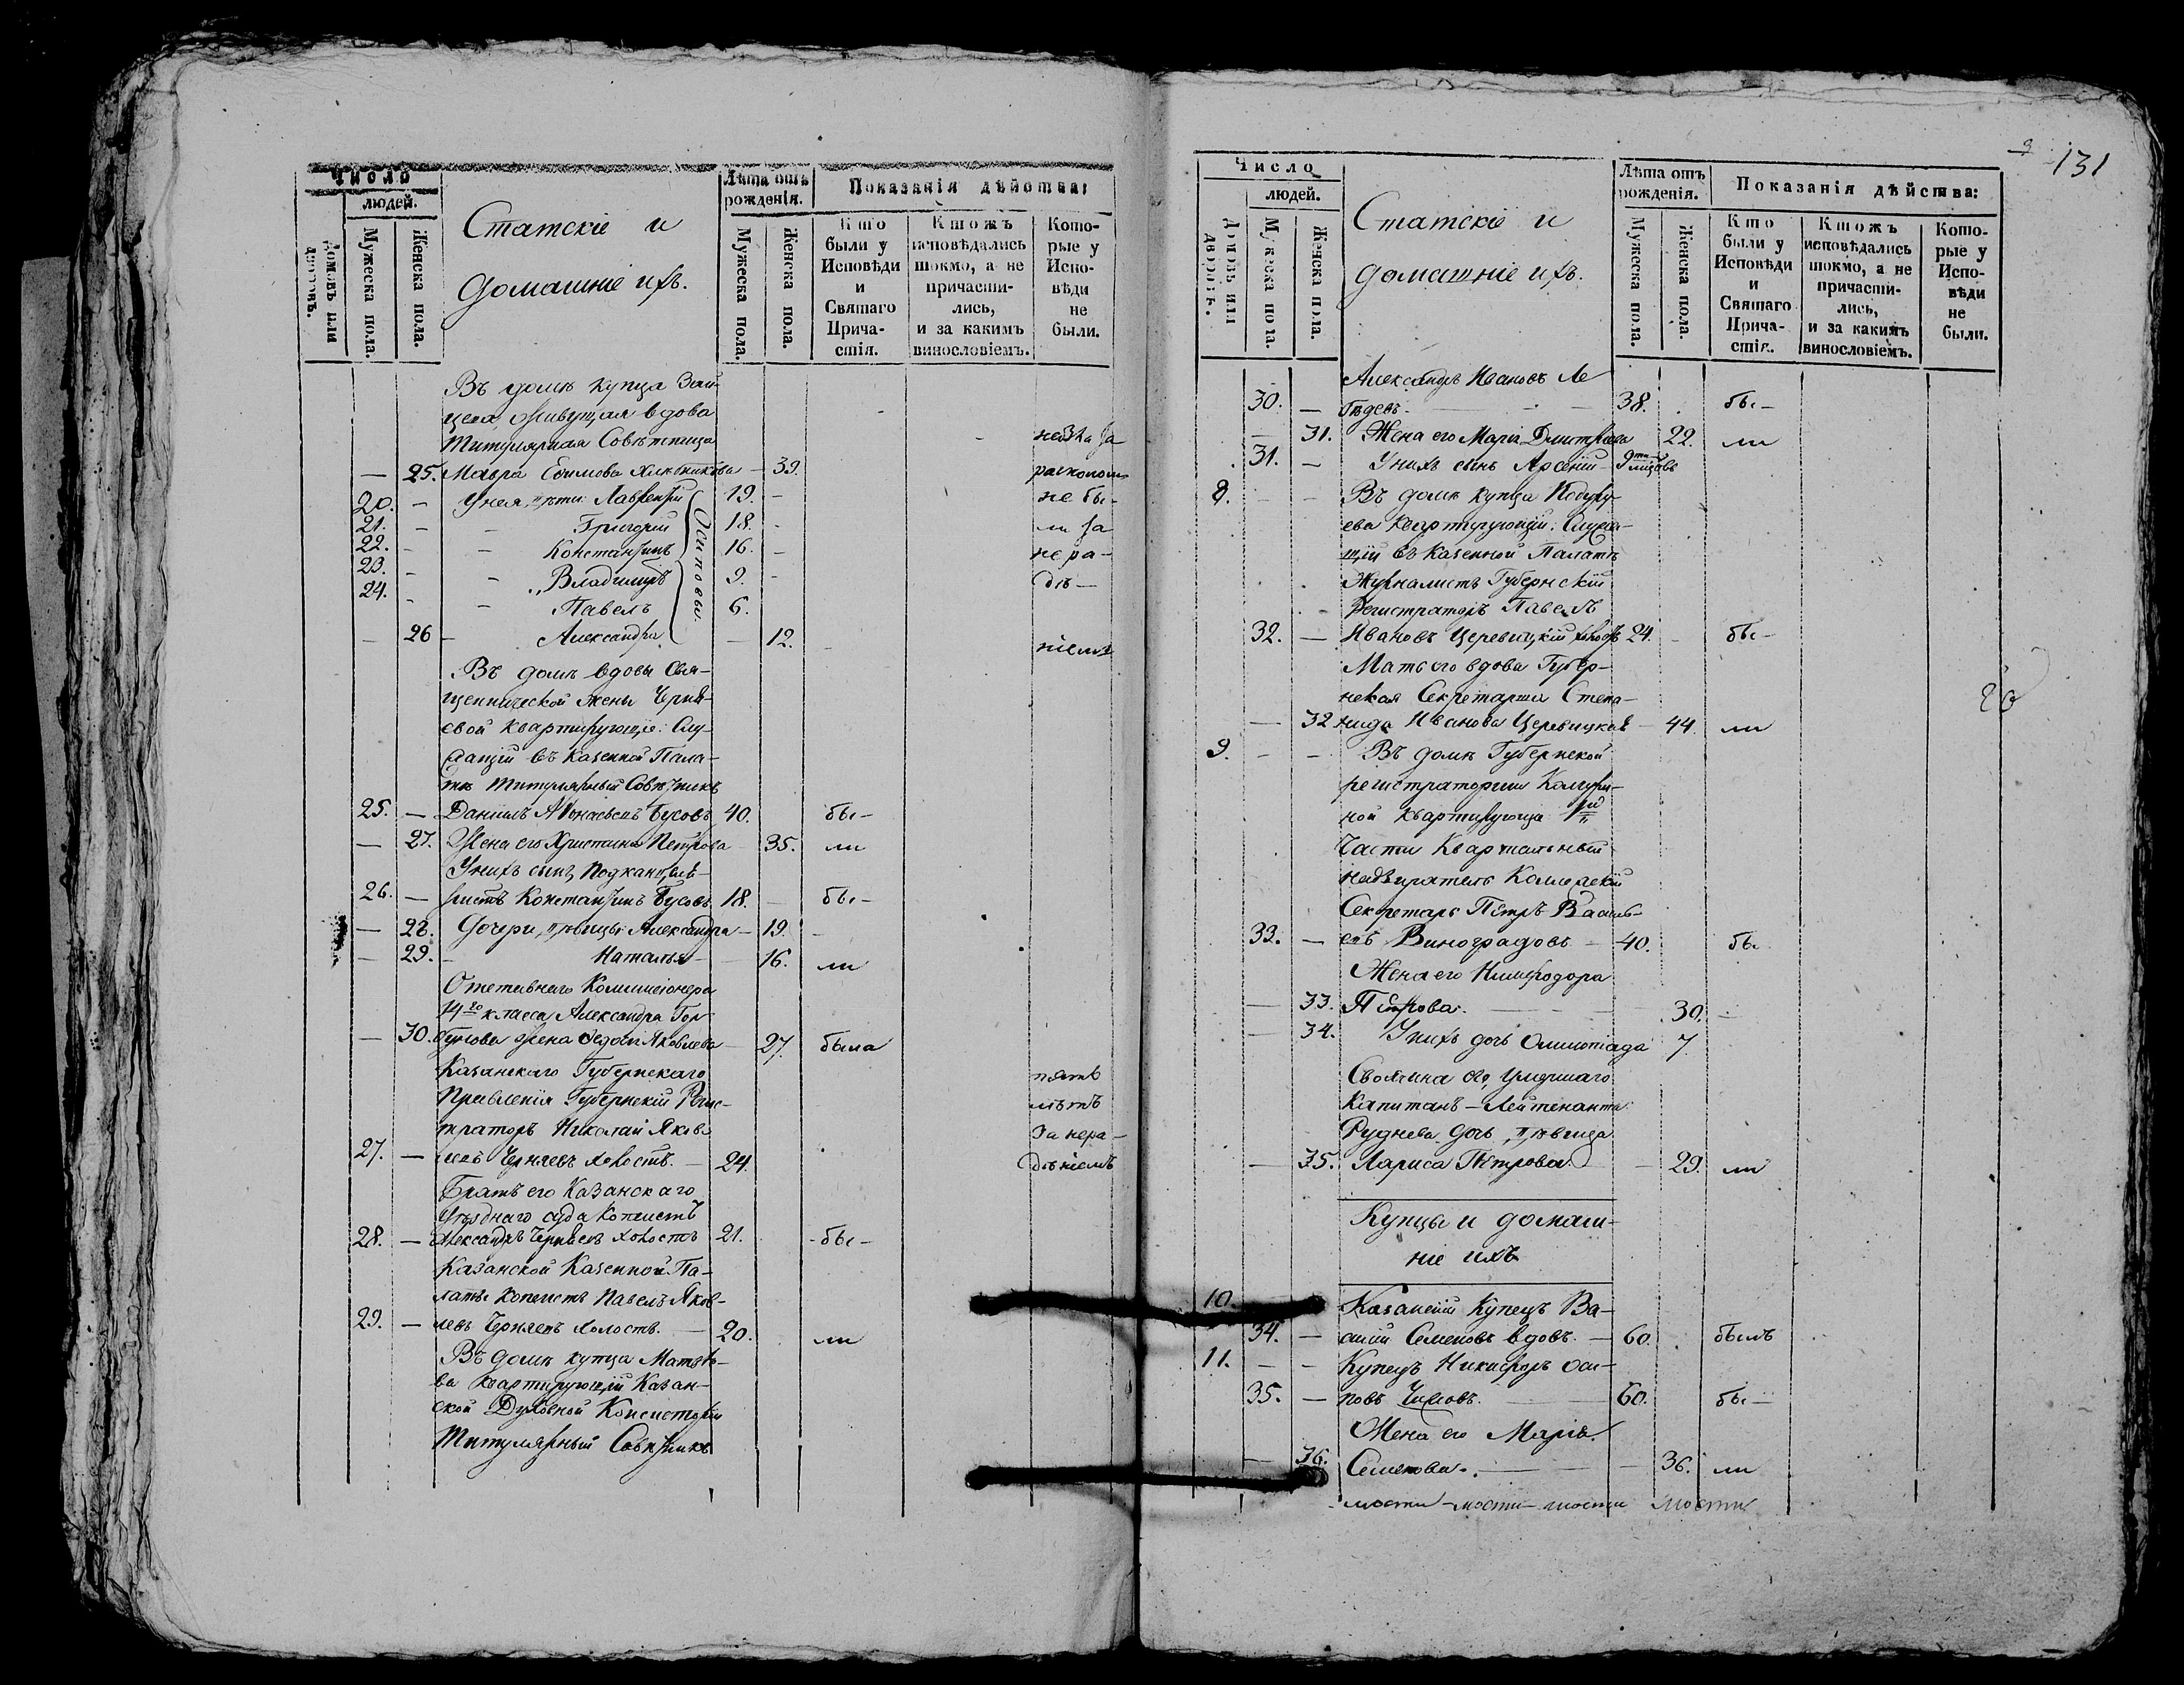 Число
людей.
Домовъ или дворовъ.
Мужеска пола.
Женска пола.
Статскіе и
домашніе ихъ.
Лѣта отъ
рожденія.
Мужеска пола.
Женска пола.
Показанія дѣйства:
Кто
были у
Исповѣди
и
Святаго
Прича-
стія.
Ктожъ
исповѣдались
токмо, а не
причасти-
лись,
и за какимъ
винословіемъ.
Кото-
рые у
Испо-
вѣди
не
были.
Въ домѣ купца Зай-
цева, живущая вдова
Титулярная Совѣтница
— 25. Мавра Ефимова — 39.
20. — У нея дѣти: Лаврентій 19. — не бы-
21. — Григорій 18. — ли за
22. — Константинъ 16. — нера-
23. — Владимиръ 9. — дѣ-
24. — Павелъ 6.
Осиповы.
— 26 — Александра — 12. ніемъ
Въ домѣ вдовы Свя-
щеннической жены Черня-
евой квартирующіе: Слу-
жащій въ Казенной Пала-
тѣ Титулярный Совѣтникъ
25. — Даніилъ Аѳонасьевъ Бусовъ 40. бы-
— 27. Жена его Христина Петрова — 35. ли
У нихъ сынъ, Подканцеля-
26. — ристъ Константинъ Бусовъ 18. — бы-
— 28. Дочери, дѣвицы: Александра — 19. —
— 29. — Наталья — 16. ли
Отставнаго Коммисіонера
14го класса Александра Гор-
— 30. бунова жена Ѳедосія Яковлева — 27. была
Казанскаго Губернскаго пять
Правленія Губернскій Реги- лѣтъ
страторъ Николай Яков- за нера-
27. — левъ Черняевъ холостъ. — 24. дѣніемъ
Братъ его Казанскаго
Уѣзднаго суда Копіистъ
28. — Александръ Черняевъ холостъ 21. бы-
Казанской Казенной Па-
латы Копіистъ Павелъ Яков-
29. — левъ Черняевъ холостъ. — 20. ли
Въ домѣ купца Матвѣе-
ва квартирующій Казан-
ской Духовной Консисторіи
Титулярный Совѣтникъ
9 131
Число
людей.
Домовъ или дворовъ.
Мужеска пола.
Женска пола.
Статскіе и
домашніе ихъ.
Лѣта отъ
рожденія.
Мужеска пола.
Женска пола.
Показанія дѣйства:
Кто
были у
Исповѣди
и
Святаго
Прича-
стія.
Ктожъ
исповѣдались
токмо, а не
причасти-
лись,
и за какимъ
винословіемъ.
Кото-
рые у
Испо-
вѣди
не
были.
Александръ Ивановъ Ле-
30. — бедевъ. — 38. бы-
— 31. Жена его Марія Дмитріева 22. ли
31. — У нихъ сынъ Арсеній 9ти мѣсяцовъ
8. — — Въ домѣ купца
ева квартирующій: Служа-
щій въ Казенной Палатѣ
Журналистъ Губернскій
Регистраторъ Павелъ
32. — Ивановъ Церевицкій холостъ 24. бы-
Мать его вдова Губер-
нская Секретарша Степа-
— 32 нида Иванова Церевицкая — 44. ли
9. — — Въ домѣ Губернской
регистраторши
ной квартирующій 1й
Части Квартальный
надзиратель Коллежскій
Секретарь Петръ Василь-
33. — евъ Виноградовъ — 40. бы
Жена его Нимфодора
— 33. Петрова. — 30. —
— 34. У нихъ дочь Олимпіада 7.
Своячина его, умершаго
Капитанъ-Лейтенанта
Руднева дочь дѣвица
— 35. Лариса Петрова. — 29. ли
Купцы и домаш-
ніе ихъ
10. Казанскій Купецъ Ва-
34. — силій Семеновъ вдовъ. — 60. былъ
11. — — Купецъ Никифоръ Оси-
35. — повъ 60. бы-
Жена его Марія
— 36. Семенова. — 36. ли